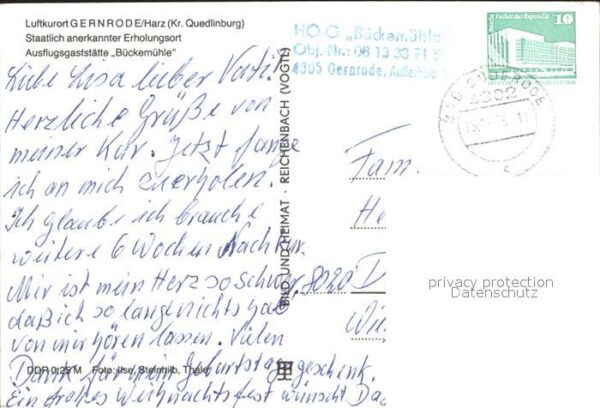 Luftkurort GERNRODE/Harz (Kr. Quedlinburg)
Staatlich anerkannter Erholungsort
Ausflugsgaststätte „Bückemühle"
HO G „Bückemühle
Obj.-Nr.: 08 13 33 71
4305 Gernrode, Außerhalb
Palast der Republik 10
Liebe Lisa lieber
Herzliche Grüße von
meiner Kur. Jetzt fange
ich an mich zu erholen.
Ich glaube ich brauche
weitere 6 Wochen Nachkur.
Mir ist mein Herz so schwer,
daß ich so lang nichts hab
von mir hören lassen. Vielen
Dank für mein Geburtstagsgeschenk.
Ein frohes Weihnachtsfest wünscht
DDR 0,25 M Foto: Ilse, Steinhilb, Thale
BILD UND HEIMAT · REICHENBACH (VOGTL)
Fam.
He
8020 D
privacy protection
Datenschutz